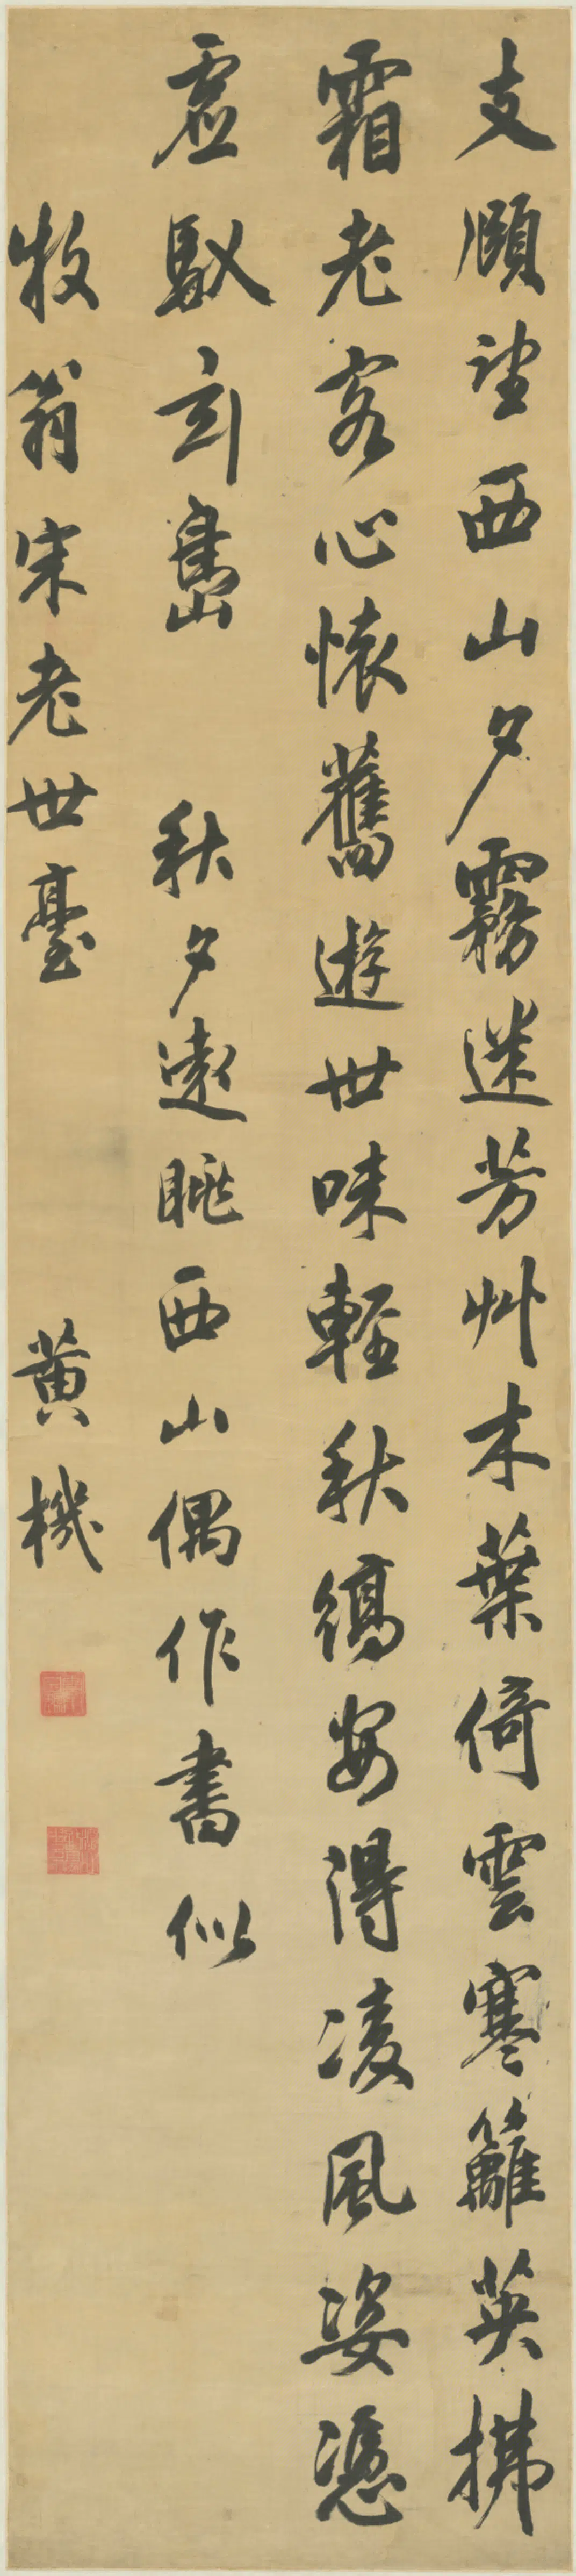 支頤望西山夕霧迷芳艸木葉倚雲寒籬英拂
霜老客心懷舊遊世味輕秋縞安得凌風姿憑
虛馭玄嶲秋夕遠眺西山偶作書似
牧翁宋老世臺
黃機